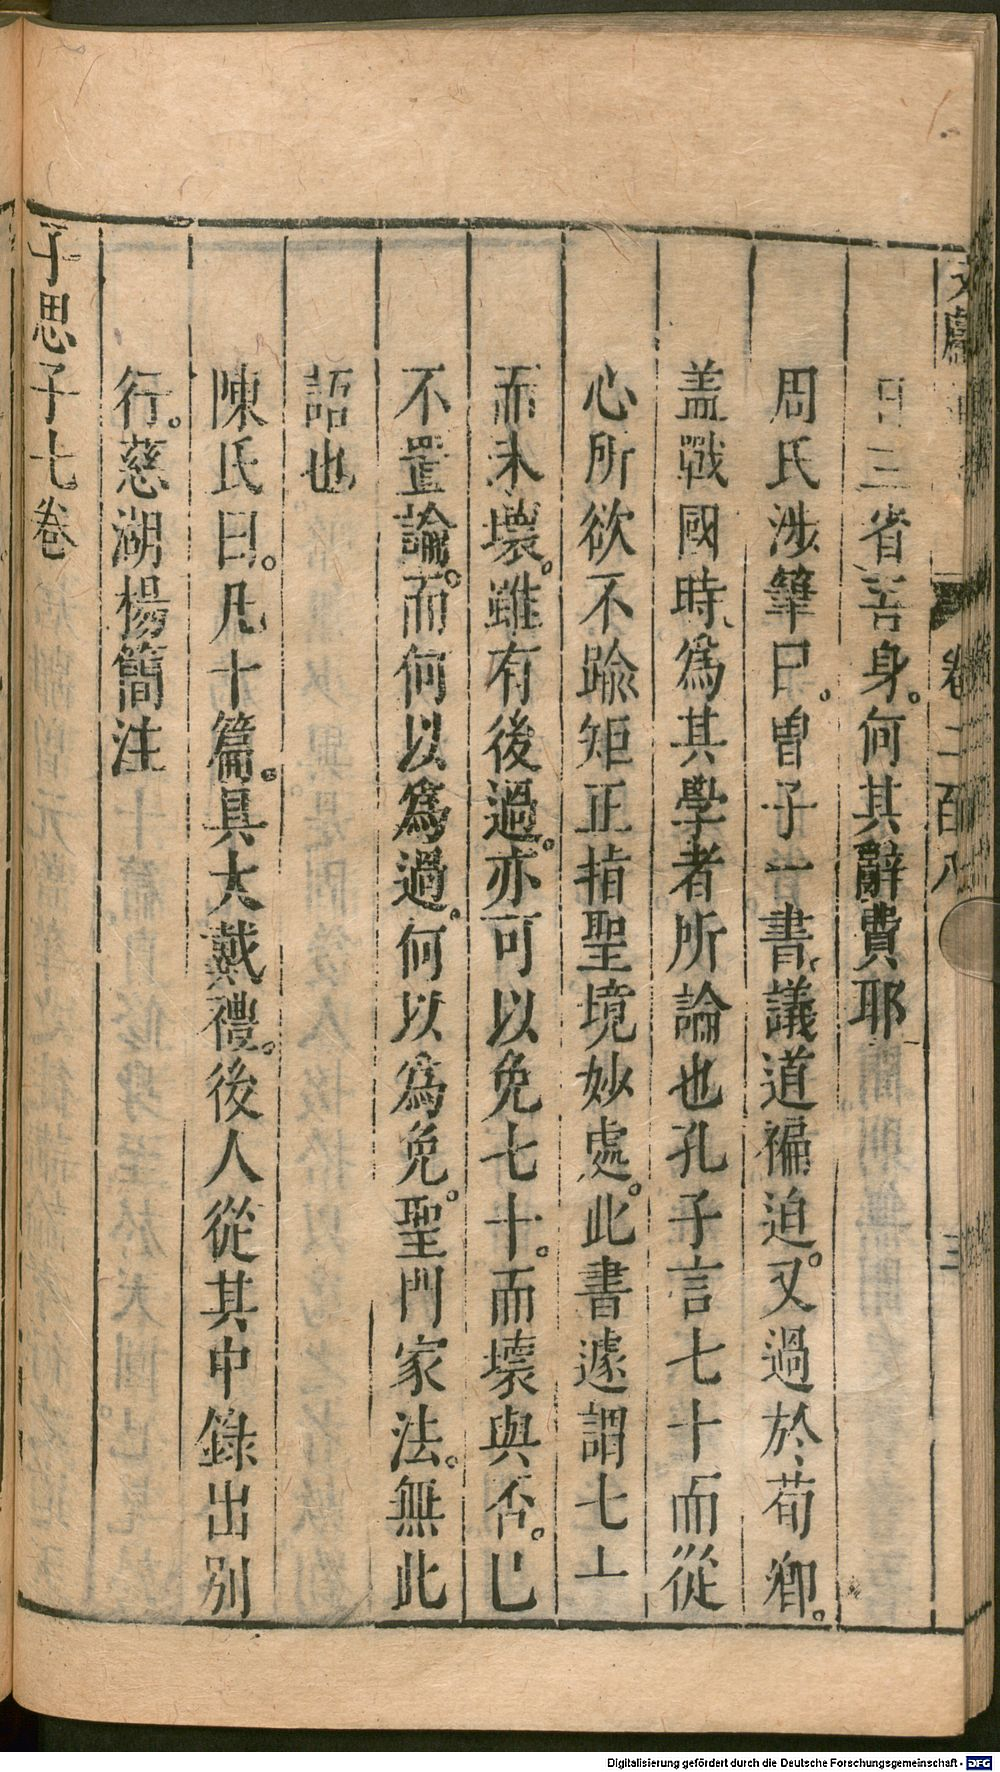 文獻 卷二百八 三
日三省吾身。何其辭費耶
周氏涉筆曰。曾子一書。議道褊迫。又過於荀卿。
盖戰國時、爲其學者所論也孔子言七十而從
心所欲不踰矩正指聖境妙處。此書遽謂七十
而未壞。雖有後過。亦可以免七十。而壞與否。已
不置論。而何以爲過。何以爲免。聖門家法。無此
語也
陳氏曰。凡十篇。具大戴禮。後人從其中錄出別
行。慈湖楊簡注
子思子七卷
Digitalisierung gefördert durch die Deutsche Forschungsgemeinschaft - DFG